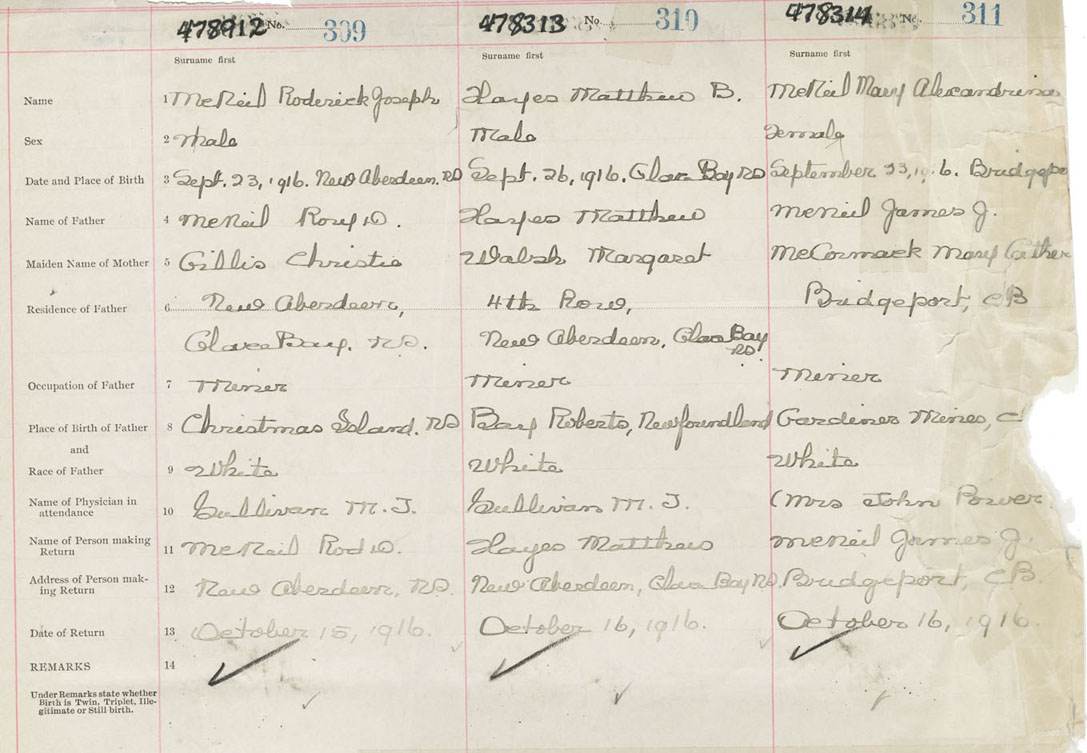 478912 No. 309 478313 No. 310 478314 No. 311
Surname first Surname first Surname first
Name 1 McNeil Roderick Joseph Hayes Matthew B. McNeil Mary Alexandrina
Sex 2 Male Male Female
Date and Place of Birth 3 Sept. 23, 1916. New Aberdeen. Sept. 26, 1916. Glace Bay September 23, 1916. Bridgepo
Name of Father 4 McNeil Rory D. Hayes Matthew McNeil James J.
Maiden Name of Mother 5 Gillis Christie Walsh Margaret McCormack Mary Cather
Residence of Father 6 New Aberdeen, 4th Row, Bridgeport, CB
Glace Bay. New Aberdeen, Glace Bay
Occupation of Father 7 Miner Miner Miner
Place of Birth of Father 8 Christmas Island. Bay Roberts, Newfoundland Gardiner Mines, C
and
Race of Father 9 White White White
Name of Physician in
attendance 10 Sullivan M. J. Sullivan M. J. (Mrs John Power
Name of Person making
Return 11 McNeil Rod D. Hayes Matthew McNeil James J.
Address of Person mak-
ing Return 12 New Aberdeen, New Aberdeen, Glace Bay Bridgeport, CB
Date of Return 13 October 15, 1916. October 16, 1916. October 16, 1916.
REMARKS 14
Under Remarks state whether
Birth is Twin, Triplet, Ille-
gitimate or Still birth.